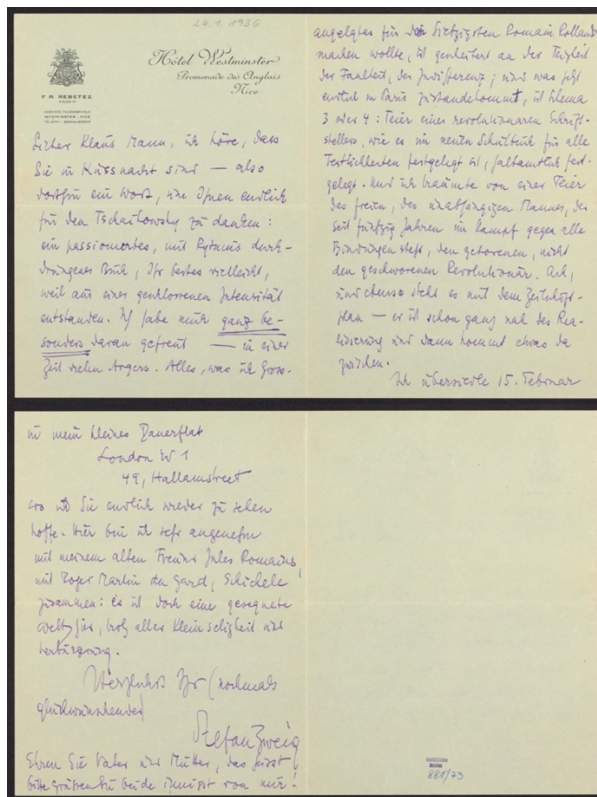 24.1.1936
Hôtel Westminster
Promenade des Anglais
Nice
F. A. REBETEZ
Lieber Klaus Mann, ich höre, dass
Sie in Küssnacht sind — also
dorthin ein Wort, um Ihnen endlich
für den Tschaikowsky zu danken:
ein passioniertes, mit Rytmus durch-
drungenes Buch, Ihr bestes vielleicht,
weil aus einer geschlossenen Intensität
entstanden. Ich habe mich ganz be-
sonders daran gefreut — in einer
Zeit vielen Ärgers. Alles, was ich Gross-
angelegtes für den Siebzigsten Romain Rollands
machen wollte, ist gescheitert an der Feigheit
der Faulheit, der Indifferenz; und was jetzt
endlich in Paris zustandekommt, ist Schema
3 oder 4: Feier eines revolutionären Schrift-
stellers, wie es im neuen Schulbuch für alle
Festlichkeiten festgelegt ist, fest-
gelegt. Und ich träumte von einer Feier
des freien, des unabhängigen Mannes, der
seit fünfzig Jahren im Kampf gegen alle
Bindungen steht, den geborenen, nicht
den geschworenen Revolutionär. Ach,
und ebenso steht es mit dem Zeitschrift-
plan — er ist schon ganz nah der Rea-
lisierung und dann kommt etwas da
zwischen.
Ich übersiedle 15. Februar
in mein kleines Dauerflat
London W 1
49, Hallamstreet
wo ich Sie endlich wieder zu sehen
hoffe. Hier bin ich sehr angenehm
mit meinem alten Freund Jules Romains,
mit Roger Martin du Gard, Schickele
zusammen: es ist doch eine gesegnete
Welt hier, trotz aller Kleinseligkeit und
Herzlichst Ihr (nochmals
glückwünschender)
Stefan Zweig
Ehren Sie Vater und Mutter, das heisst
bitte grüssen Sie beide innigst von mir!
881/73